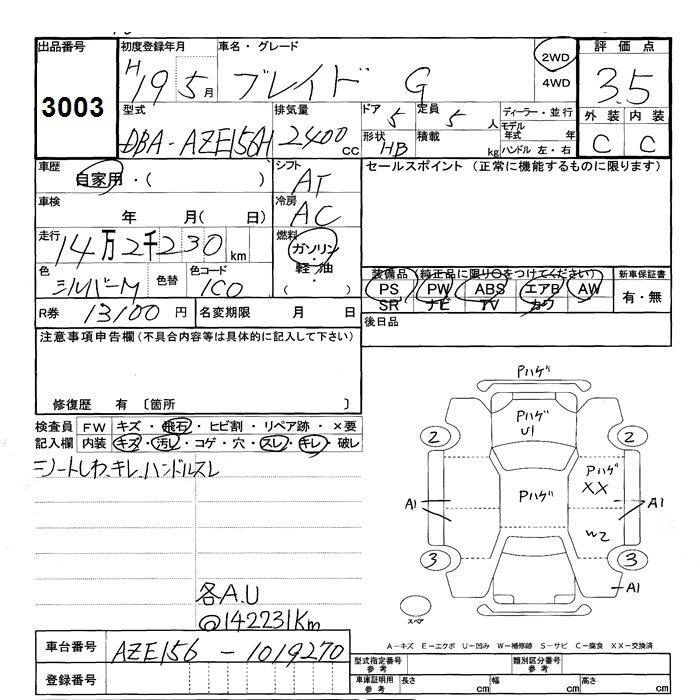 出品番号 初度登録年月 車名・グレード 2WD 評価点
3003 H19 5月 ブレイド G 4WD 3.5
型式 排気量 ドア 5 定員 5 人 ディーラー・並行 外装 内装
DBA-AZE156H 2400 CC 形状 HB 積載 kg モデル年式 年 C C
ハンドル 左・右
車歴 自家用・( ) シフト AT セールスポイント (正常に機能するものに限ります)
車検 年 月( 日) 冷房 AC
走行 14万2千230 km 燃料 ガソリン・軽油・( )
色 シルバーM 色替 色コード 1C0 装備品 (純正品に限り○をつけてください) 新車保証書
PS PW ABS エアB AW 有・無
SR ナビ TV カワ
R券 13100 円 名変期限 月 日 後日品
注意事項申告欄 (不具合内容等は具体的に記入して下さい)
修復歴 有 〔箇所 〕
検査員 FW キズ・飛石・ヒビ割・リペア跡・×要
記入欄 内装 キズ・汚レ・コゲ・穴・スレ・キレ・破レ
シートしわ、キレ、ハンドルスレ
Pハゲ
Pハゲ
U1
2 2
Pハゲ Pハゲ
XX
A1 A1
W2
3 3
A1
各A.U
@142231Km
スペア
A-キズ E-エクボ U-凹み W-補修跡 S-サビ C-腐食 XX-交換済
車台番号 AZE156-1019270
型式指定番号 参考 類別区分番号 参考
登録番号 車庫証明用 参考 長さ cm 幅 cm 高さ cm